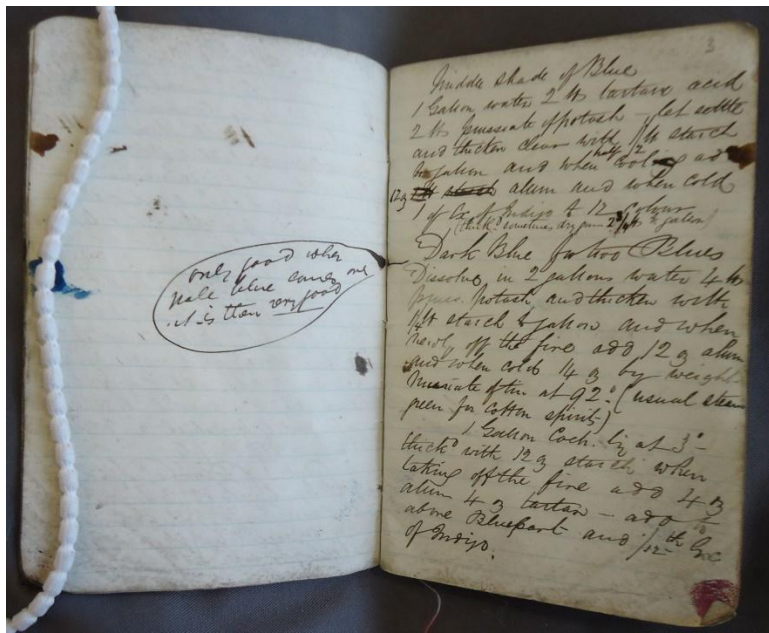 only good when
pale blue comes over
it is then very good
3
Middle shade of Blue
1 Gallon water 2 lb tartaric acid
2 lb prussiate of potash – let settle
and thicken clear with 1/4 lb starch
to gallon and when half cooling add
12 oz alum and when cold
1 of Ex of Indigo to 12 colour
(thickd sometimes dry gum 2 3/4 lb to gallon)
Dark Blue for two Blues
Dissolve in 2 gallons water 4 lb
pruss. Potash and thicken with
1 1/4 lb starch to gallon and when
newly off the fire add 12 oz alum
and when cold 14 oz by weight
Muriate of tin at 92° (usual steam
green for cotton spirits)
1 Gallon Coch. liq at 3°
thickd with 12 oz starch when
taking off the fire add 4 oz
alum 4 oz tartar – add to
above Blue part and 1/12th Ex
of Indigo.